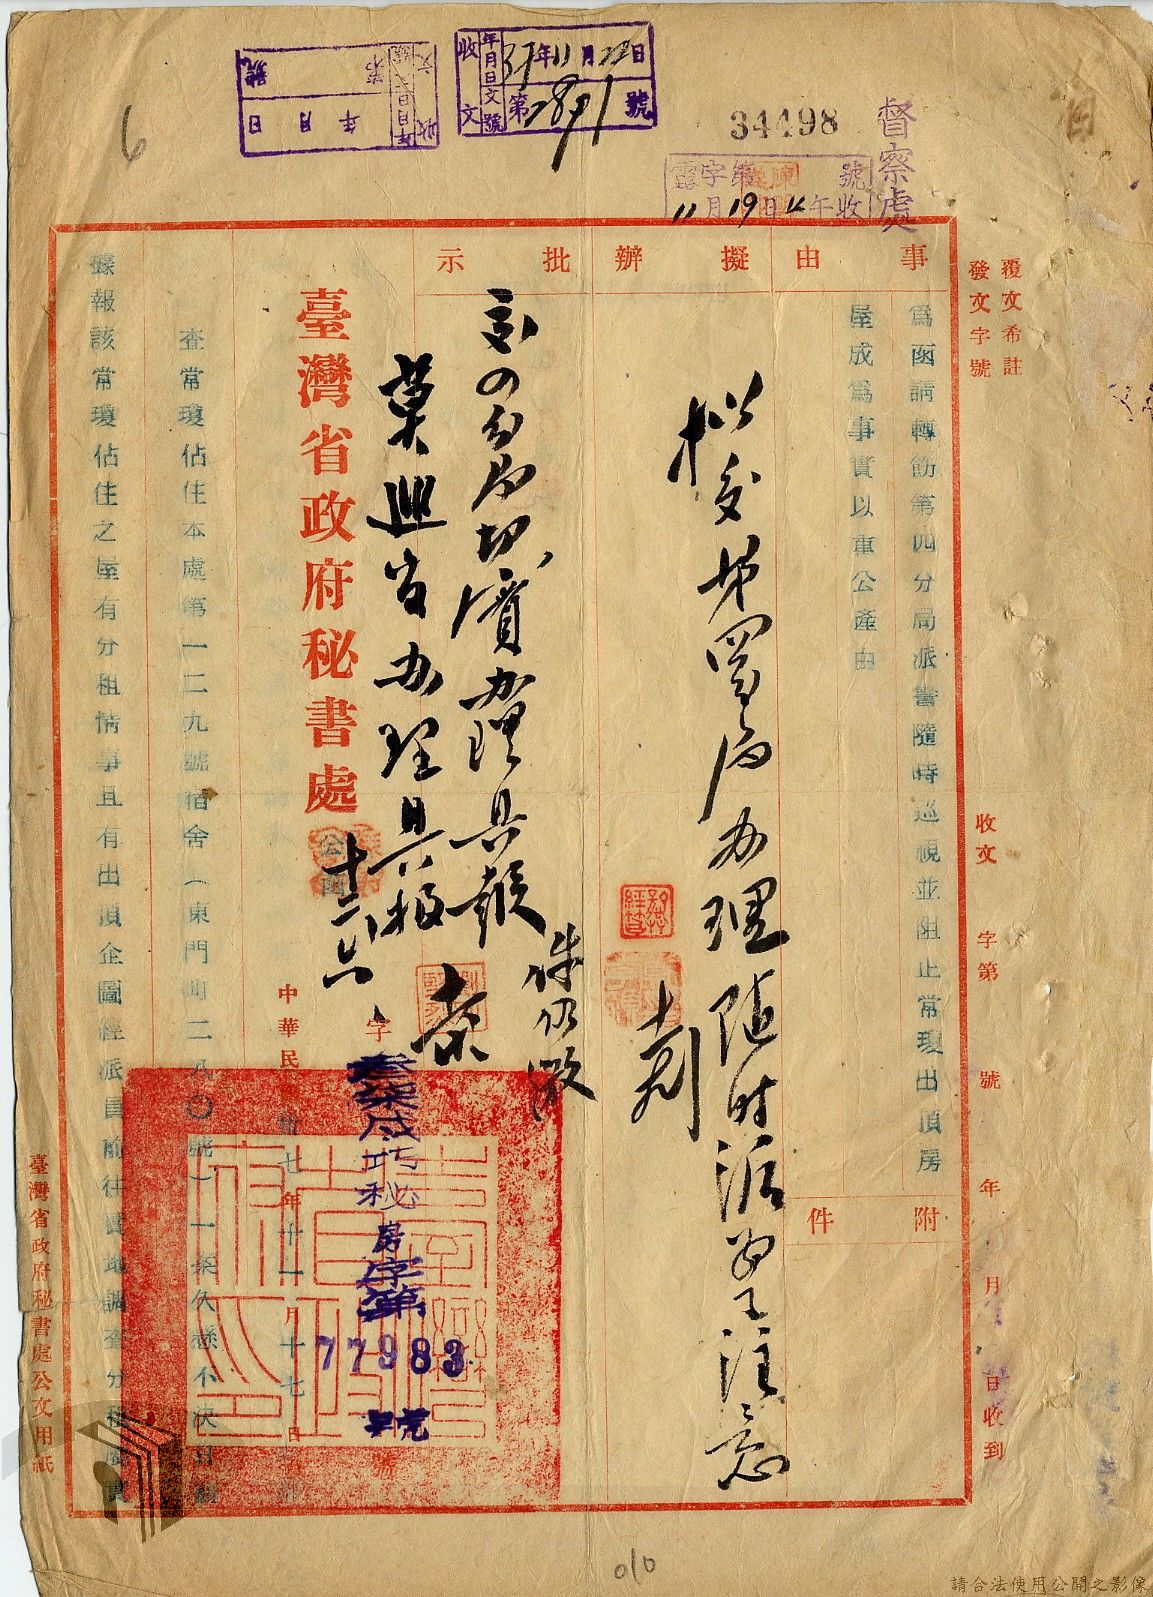 34498
督察處
電字第 號
11月19日 年收
收文 年月日 37年11月22日
文號 第2891號
收文 年月日 年 月 日
文號 第 號
6
覆文希註
發文字號
收文 字第 號 年 月 日收到
事由
為函請轉飭第四分局派警隨時巡視並阻止常瓊出頂房
屋成為事實以重公產由
附件
擬辦
擬交第四分局办理随时派員注意
批示
交四分局切實办理具報
莫興省办理具報
十二六
臺灣省政府秘書處
公函
中華民國卅七年十一月十七日
字
叁柒戌巧秘房字第
77983
號
查常瓊佔住本處第一二九號宿舍(東門町二八〇號)一案久懸不決日前
據報該常瓊佔住之屋有分租情事且有出頂企圖經派員前往實地調查分租屬實
臺灣省政府秘書處公文用紙
010
請合法使用公開之影像